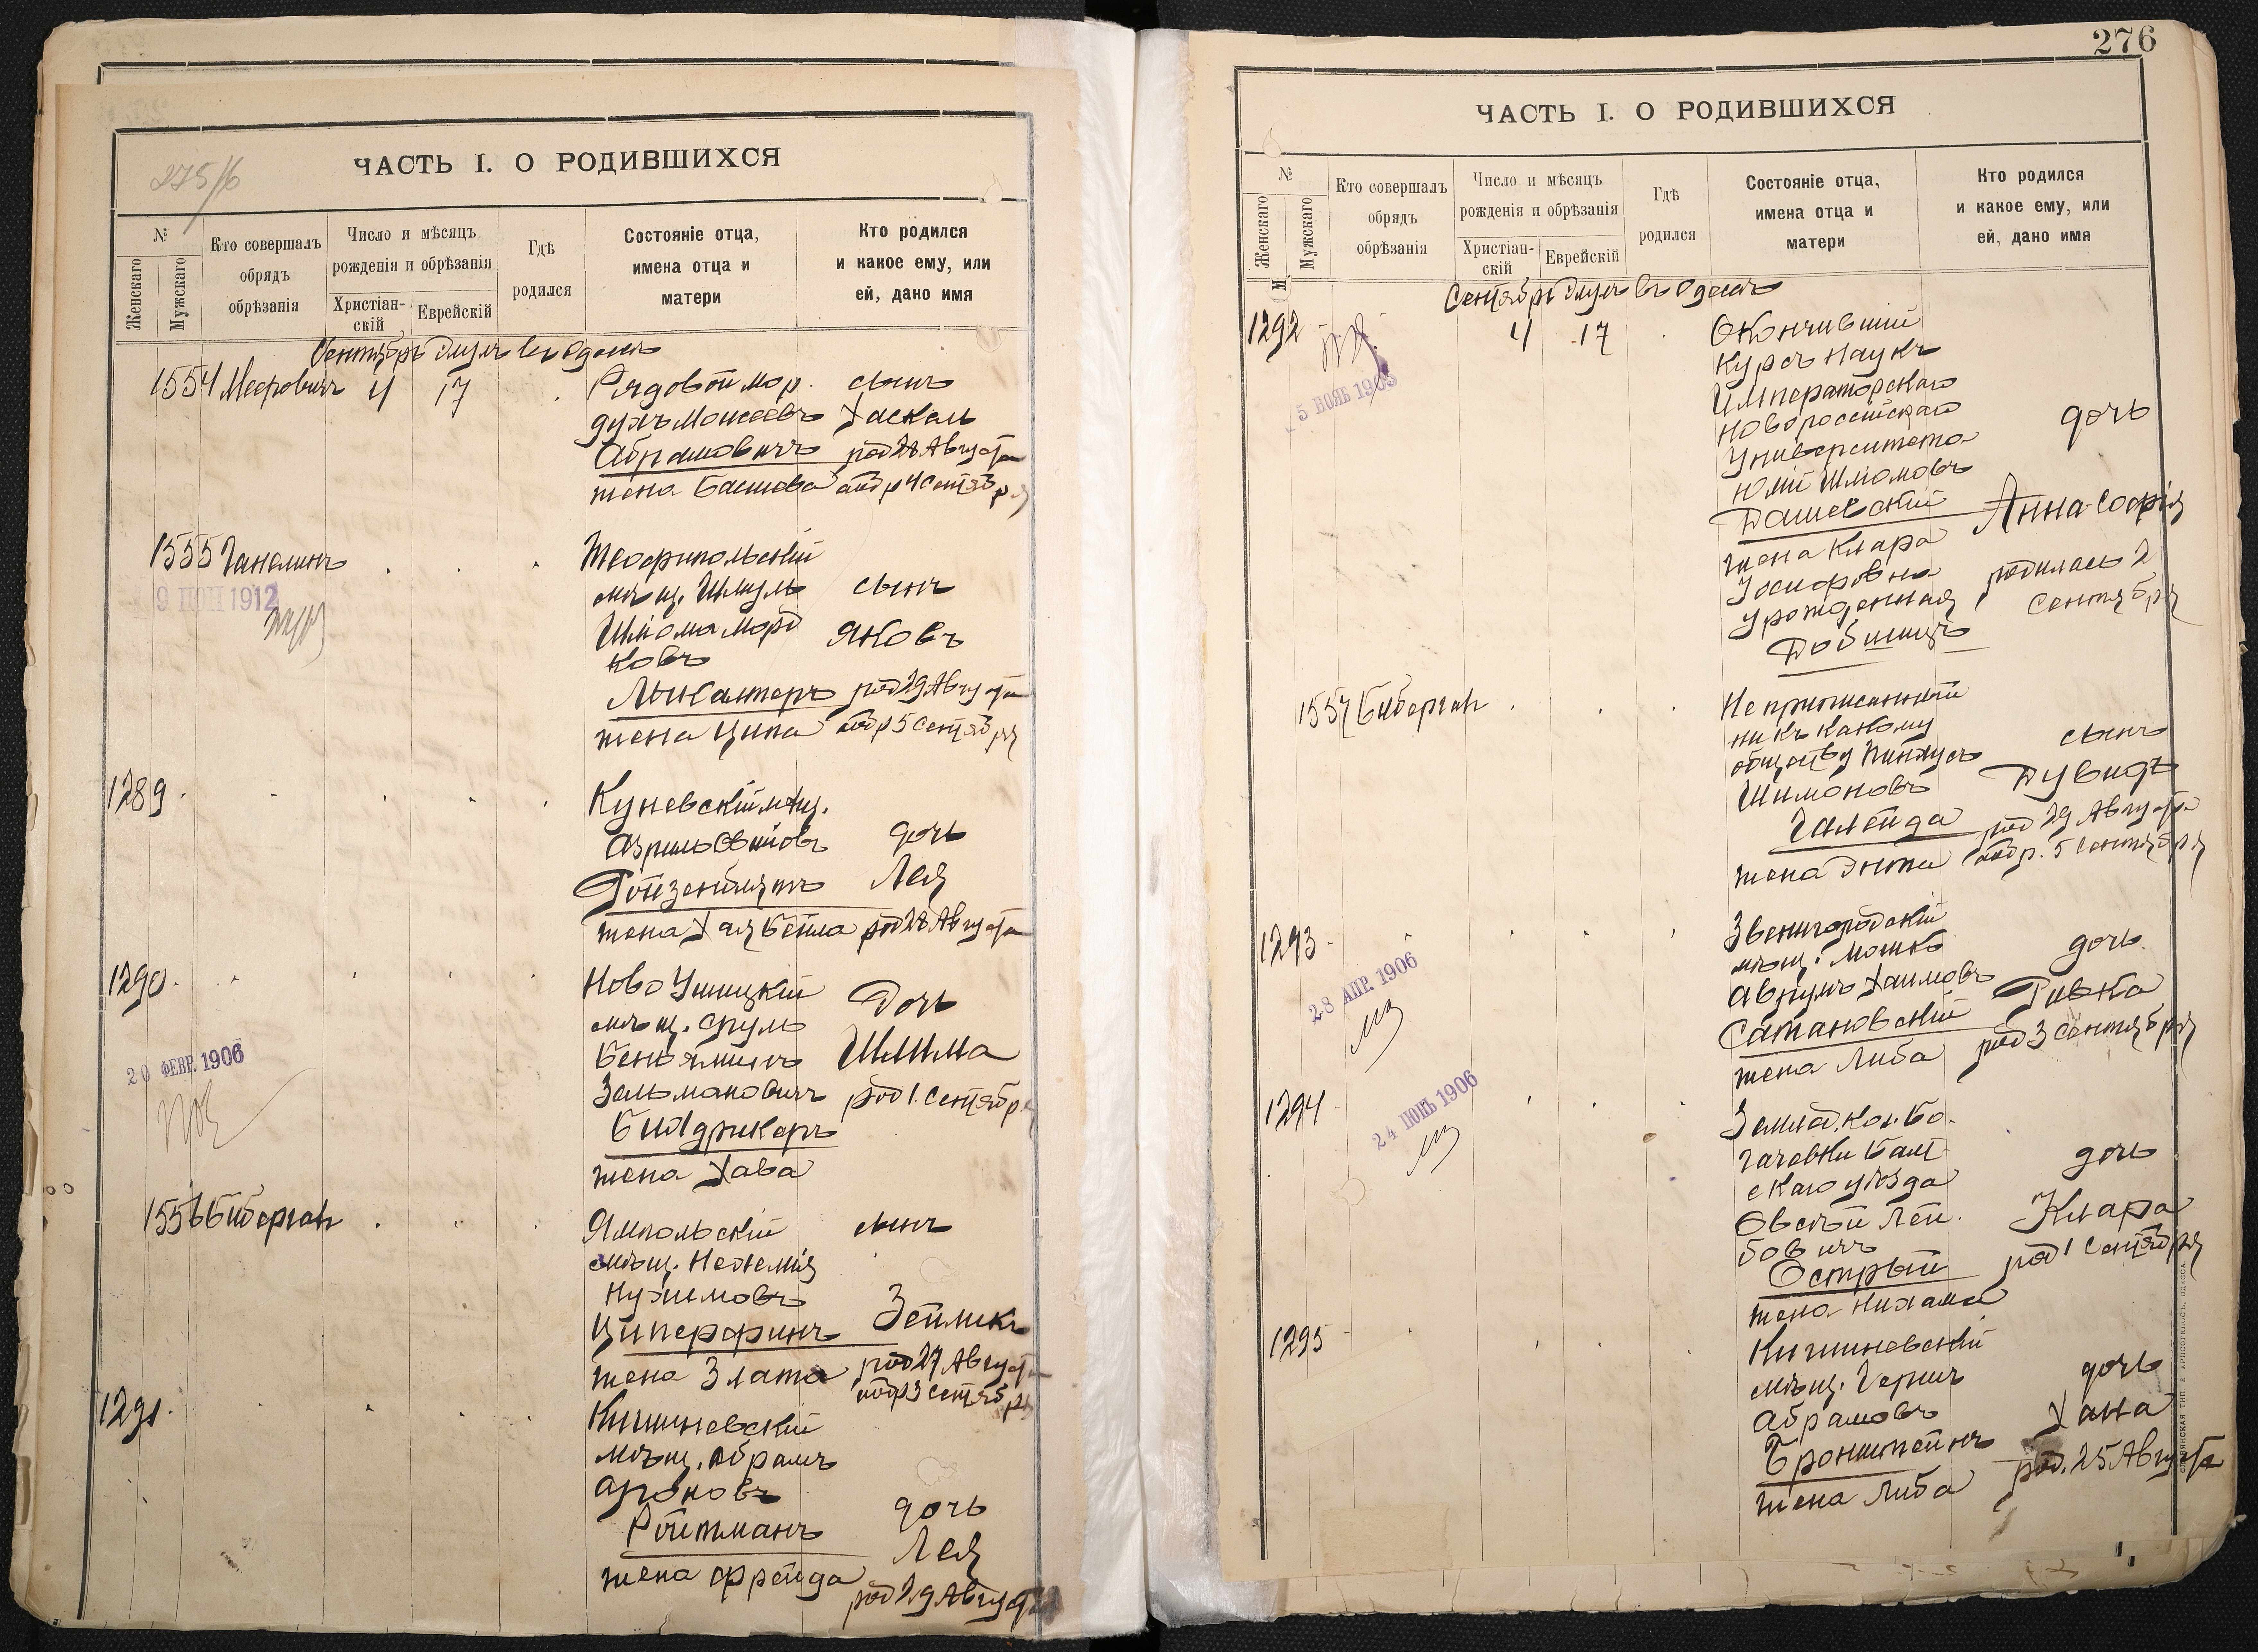 275/б
ЧАСТЬ I. О РОДИВШИХСЯ
№
Женскаго
Мужскаго
Кто совершалъ
обрядъ
обрѣзанія
Число и мѣсяцъ
рожденія и обрѣзанія
Христіан-
скій
Еврейскій
Гдѣ
родился
Состояніе отца,
имена отца и
матери
Кто родился
и какое ему, или
ей, дано имя
Сентябрь Элулъ въ Одессѣ
1554 Меерович 4 17
Рядовой мор.
духъ Моисеевъ
Абрамовичъ
жена Башева
сынъ
Хаскель
род 28 Августа
обр 4 Сентября
1555 Ганелинъ
9 1912
Теофипольскій
мѣщ. Шмуль
Шлома Морд
ковъ
жена Ципа
сынъ
Яковъ
род 29 Августа
обр 5 Сентября
1289
Куневскій мѣщ.
Азриль
Ройзенблитъ
жена Хая Бейла
дочь
Лея
род 28 Августа
1290
20 ФЕВР. 1906
Ново Ушицкій
мѣщ. Сруль
Беньяминъ
Зельмановичъ
жена Хава
Дочь
Шлима
род 1 Сентября
1556 Биберганъ
Ямпольскій
мѣщ. Нехемія
Нухимовъ
Циперфинъ
жена Злата
сынъ
Зейликъ
род 27 Августа
обр 3 Сентября
1291
Кишиневскій
мѣщ. Абрамъ
Ароновъ
Ройтманъ
жена Фрейда
дочь
Лея
род 29 Августа
276
ЧАСТЬ I. О РОДИВШИХСЯ
№
Женскаго
Мужскаго
Кто совершалъ
обрядъ
обрѣзанія
Число и мѣсяцъ
рожденія и обрѣзанія
Христіан-
скій
Еврейскій
Гдѣ
родился
Состояніе отца,
имена отца и
матери
Кто родился
и какое ему, или
ей, дано имя
Сентябрь Элулъ въ Одессѣ
1292 4 17
5 НОЯБ 1905
Окончившій
курсъ наукъ
Императорскаго
Новороссійскаго
Университета
Юлій Шломовъ
Дашевскій
жена Клара
Іосифовна
урожденная
дочь
Анна-Софія
родилась 2
Сентября
1557 Биберганъ
Неприписанный
ни къ какому
обществу Пинхусъ
Шимоновъ
Галейда
жена Энта
сынъ
Дувидъ
род 29 Августа
обр. 5 Сентября
1293
28 АПР. 1906
Звенигородскій
мѣщ. Мошко
Аврумъ Хаимовъ
Сатановскій
жена Либа
дочь
Ривка
род 3 Сентября
1294
24 ІЮНЬ 1906
Землед. кол. Бо.
гачевки Балт
скаго уѣзда
Овсѣй Лей.
бовичъ
Острый
жена Нихама
дочь
Клара
род 1 Сентября
1295
Кишиневскій
мѣщ. Гершъ
Абрамовъ
Бронштейнъ
жена Либа
дочь
Хана
род. 25 Августа